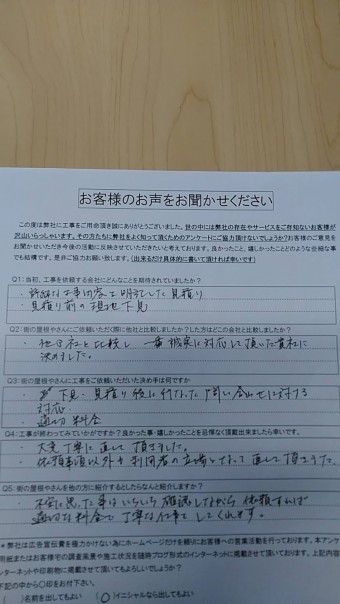 お客様のお声をお聞かせください
この度は弊社に工事をご用命頂き誠にありがとうございました。世の中には弊社の存在やサービスをご存知ないお客様が
沢山いらっしゃいます。その方たちに弊社をよく知って頂くためのアンケートにご協力頂けないでしょうか?お客様のご意見を
お聞かせいただき今後の活動に反映させていただきたいと考えております。良かったこと、嬉しかったことどのような些細な事
でも結構です。是非ご協力お願い致します。(出来るだけ具体的に書いて頂ければ幸いです)
Q1:当初、工事を依頼する会社にどんなことを期待されていましたか?
・詳細な工事内容を明記した見積り
・見積り前の現地下見
Q2:街の屋根やさんにご依頼いただく際に他社と比較しましたか?した方はどこの会社と比較しましたか?
・他 と比較し 一番誠実に対応して頂いた貴社に
決めました。
Q3:街の屋根やさんに工事をご依頼いただいた決め手は何ですか
下見・見積り後に行なった問い合わせに対する
対応。
・適切な料金
Q4:工事が終わってみていかがですか?良かった事・嬉しかったことを忌憚なく頂戴出来ましたら幸いです。
・大変丁寧に直して頂きました。
・依頼事項以外も利用者の立場となって直して頂きました。
Q5:街の屋根やさんを他の方に紹介するとしたらなんと紹介しますか?
・不安に思った事はいちいち確認しながら依頼すれば
適切な料金で丁寧な仕事をしてくれます。
*弊社は広告宣伝費を極力かけない為にホームページだけを頼りお客様への営業活動を行っております。本アンケ
用紙またはお客様での調査風景や施工状況を随時ブログ形式のインターネットに掲載させて頂いております。上記内容
ンターネットや印刷物に掲載させて頂いてもよろしいでしょうか?
下記の中から○印をお付下さい。
( )名前を出してもよい (○)イニシャルなら出してもよい